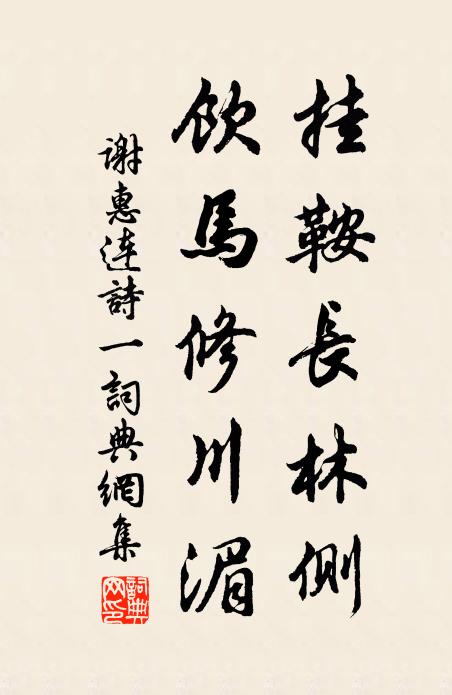 挂鞍長林側
飲馬修川湄
謝惠連詩一詞典網集
詞典网印